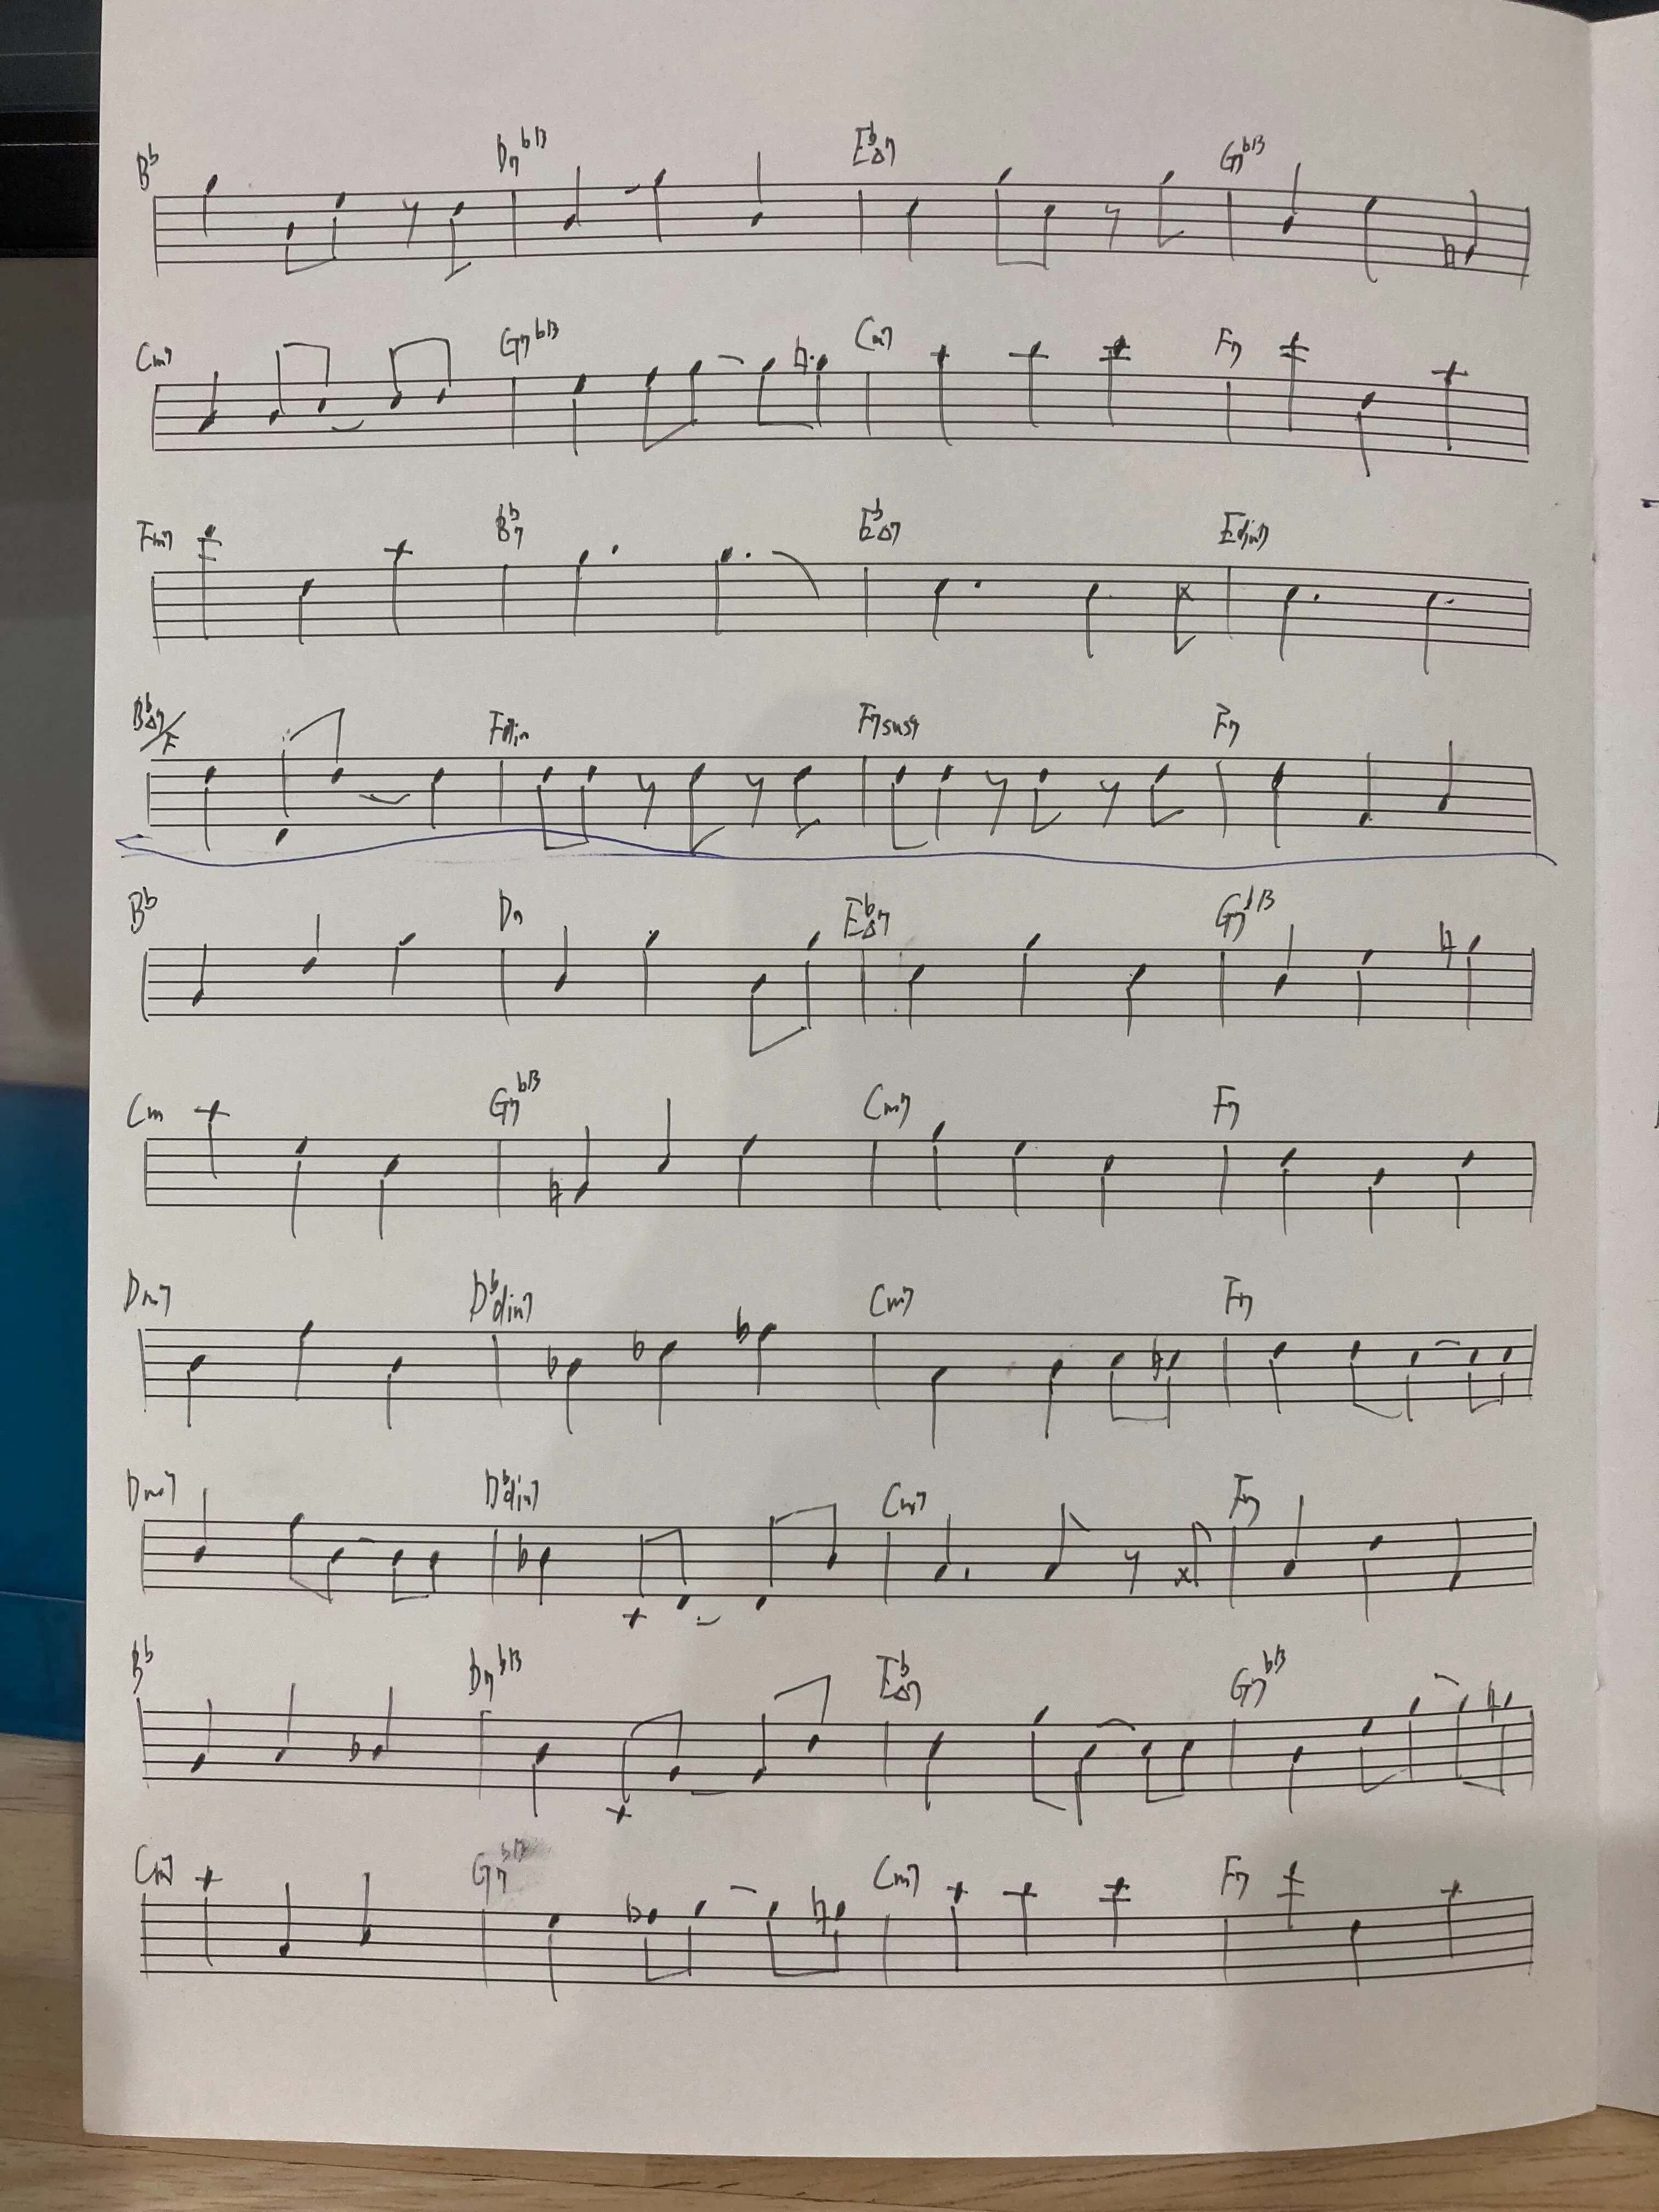 B♭ D7♭13 E♭Δ7 G7♭13
Cm7 G7♭13 Cm7 F7
Fm7 B♭7 E♭Δ7 Edim7
B♭Δ7/F Fdim F7sus4 F7
B♭ D7 E♭Δ7 G7♭13
Cm G7♭13 Cm7 F7
Dm7 D♭dim7 Cm7 F7
Dm7 D♭dim7 Cm7 F7
B♭ D7♭13 E♭Δ7 G7♭13
Cm7 G7♭13 Cm7 F7